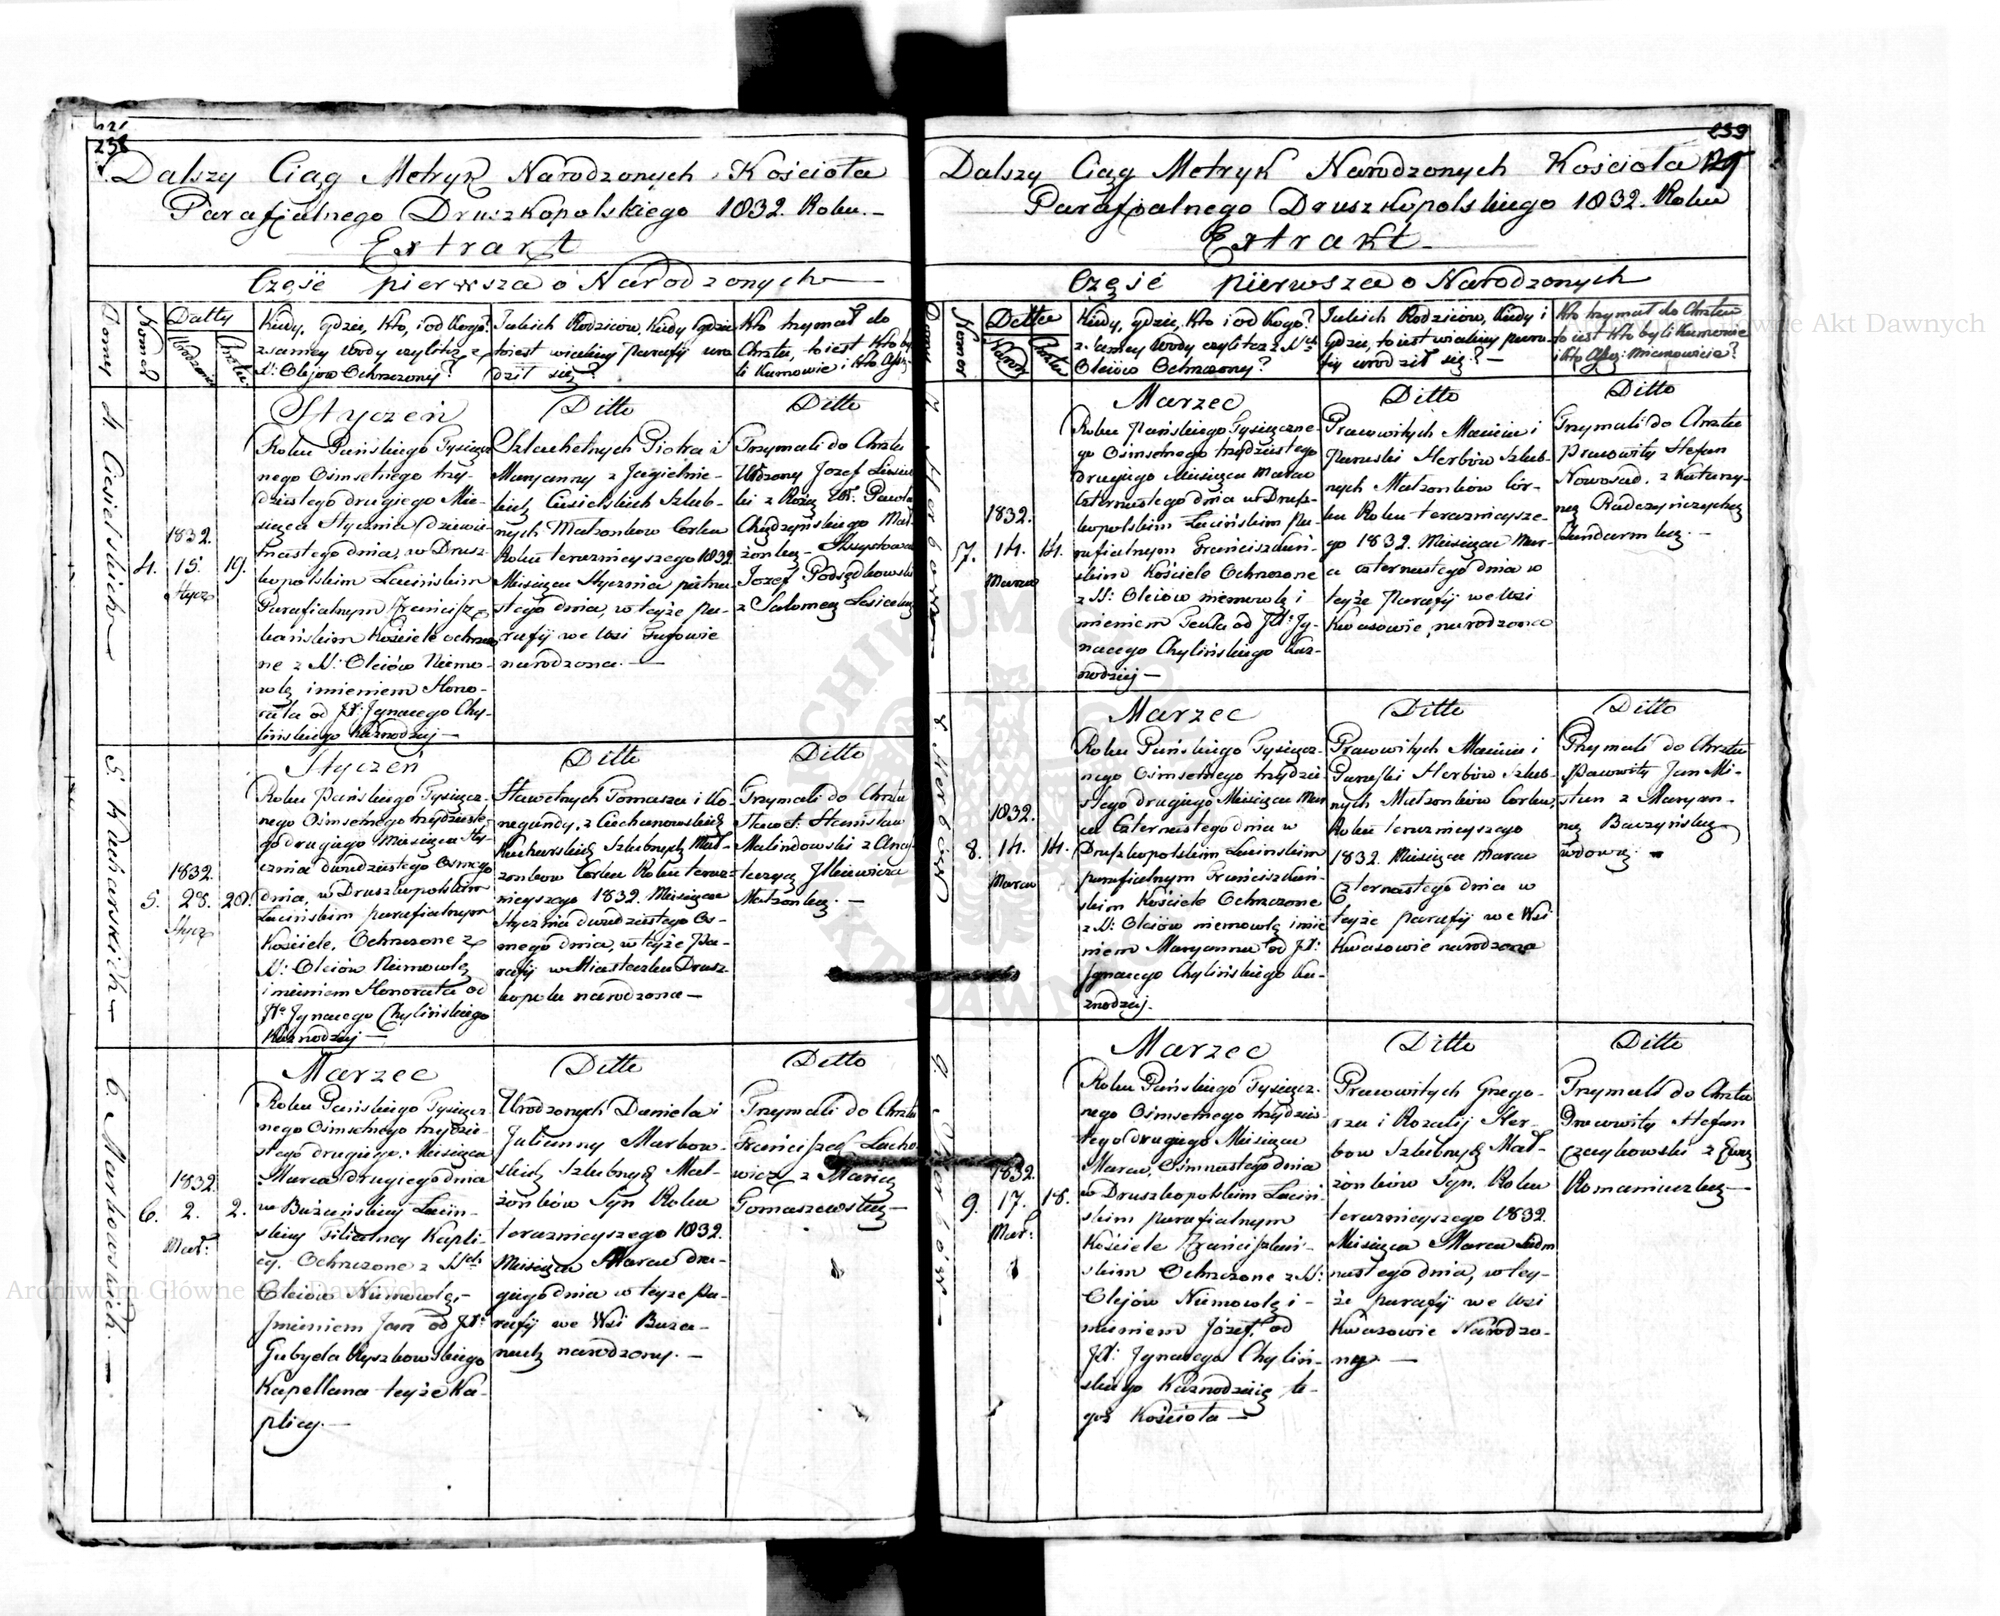 238
Dalszy Ciąg Metryk Narodzonych Kościoła
Parafialnego Druszkopolskiego 1832. Roku.
Extrakt
Część pierwsza o Narodzonych
Domu
Nomer
Datty
Urodzenia
Chrztu
Kiedy, gdzie, kto, i od kogo?
z samey wody czyli też z
S: Olejow Ochrzczony?
Jakich Rodziców, kiedy i gdzie
to iest w iakiey parafij uro
dził się?
Kto trzymał do
Chrztu, to iest kto by
li Kumowie i kto Assys:
4. Ciesielskich
4.
1832.
15.
Stycz
19.
Styczeń
Roku Pańskiego Tysiącz
nego Ośmsetnego trzy-
dziestego drugiego Mie-
siąca Stycznia dziewię
tnastego dnia, w Drusz
kopolskim Łacińskim
Parafialnym Francisz
kańskim Kościele ochrzczo
ne z S: Oleiów Niemo-
wlę imieniem Hono-
rata od JX: Jgnacego Chy-
lińskiego Kaznodzieji
Ditto
Szlachetnych Piotra i
Maryanny z Jagielnic-
kich Ciesielskich Szlub-
nych Małżonkow Corka
Roku teraznieyszego 1832
Miesiąca Stycznia piętna
stego dnia, w teyże pa-
rafij we Wsi
narodzona.
Ditto
Trzymali do Chrztu
Urodzony Jozef
ki z Rożą Ur: Pawła
Chądzyńskiego Mał-
żonką
Jozef Podsędkowski
z Salomeą
5. Kucharskich
5.
1832
28.
Stycz
28.
Styczeń
Roku Pańskiego Tysiącz-
nego Ośmsetnego trzydzieste
go drugiego Miesiąca Sty-
cznia dwudziestego Osmego
dnia, w Druszkopolskim
Łacińskim parafialnym
Kościele, Ochrzczone z
S: Oleiów Niemowlę
imieniem Honorata od
JX: Jgnacego Chylińskiego
Kaznodzieji
Ditto
Sławetnych Tomasza i Ko-
negundy, z Ciechanowskich
Kucharskich Szlubnych Mał-
żonkow Corka Roku teraz-
nieyszego 1832. Miesiąca
Stycznia dwudziestego Os-
mego dnia, w teyże Pa-
rafij w Miasteczku Drusz-
kopolu narodzona
Ditto
Trzymali do Chrztu
Sławet: Stanisław
Malindowski z
Małżonką.
6. Markowskich.
6.
1832.
2.
Mar:
2.
Marzec
Roku Pańskiego Tysiącz
nego Ośmsetnego trzydzie-
stego drugiego. Miesiąca
Marca drugiego dnia
w Bużańskiey Łaciń-
skiey Filialney Kapli-
cy. Ochrzczone z Sch
Oleiow Niemowlę,
Jmieniem Jan od JX:
Gabryela Ryszkowskiego
Kapellana teyże Ka-
plicy.
Ditto
Urodzonych Daniela i
Julianny Markow-
skich Szlubnych Mał-
żonków Syn Roku
teraznieyszego 1832.
Miesiąca Marca dru-
giego dnia w teyże pa-
rafij we Wsi Buża-
nach narodzony.
Ditto
Trzymali do Chrztu
Franciszek Lacho
wicz z Marią
Tomaszewską
239
Dalszy Ciąg Metryk Narodzonych Kościoła
Parafialnego Druszkopolskiego 1832. Roku
Extrakt
Część pierwsza o Narodzonych
Domu
Nomer
Datta
Narodz
Chrztu
Kiedy, gdzie, kto i od kogo?
z samey wody czyli też z Sch
Oleiów Ochrzczony?
Jakich Rodziców, kiedy i
gdzie, to iest w iakiey para-
fij urodził się?
Kto trzymał do Chrztu
to iest kto byli Kumowie
i kto Assys: Mianowicie?
7. Herbow
7.
1832.
14.
Marca
14.
Marzec
Roku Pańskiego Tysiączne-
go Ośmsetnego trzydziestego
drugiego Miesiąca Marca
Czternastego dnia w Drusz-
kopolskim Łacińskim Pa-
rafialnym Franciszkań-
skim Kościele Ochrzczone
z S: Oleiów niemowlę i
mieniem Tekla od JX: Jg-
nacego Chylińskiego Kaz-
nodzieji
Ditto
Pracowitych Macieia i
Paraski Herbów Szlub-
nych Małżonków Cór-
ka Roku teraznieysze-
go 1832. Miesiąca Mar-
ca czternastego dnia w
teyże Parafij we Wsi
Kwasowie, narodzona
Ditto
Trzymali do Chrztu
Pracowity Stefan
Nowosad. z Katarzy-
ną Radczyńczychą
Żandarmką.
8. Herbow
8.
1832.
14.
Marca
14.
Marzec
Roku Pańskiego Tysiącz-
nego Ośmsetnego trzydzie
stego drugiego Miesiąca Mar
ca Czternastego dnia w
Druszkopolskim Łacinskim
parafialnym Franciszkań-
skim Kościele Ochrzczone
z S: Oleiów niemowlę imie
niem Maryanna od JX:
Jgnacego Chylińskiego Ka-
znodzieji.
Ditto
Pracowitych Macieia i
Paraski Herbów Szlub-
nych Małżonków Corka,
Roku teraznieyszego
1832. Miesiąca Marca
Czternastego dnia w
teyże parafij we Wsi
Kwasowie narodzona
Ditto
Trzymali do Chrztu
Pracowity Jan Mi-
stan z Maryan-
ną Baczyńską
wdową.
9. Herbów
9.
1832.
17.
Mar:
18.
Marzec
Roku Pańskiego Tysiącz-
nego Ośmsetnego trzydzies
tego drugiego Miesiąca
Marca, Ośmnastego dnia
w Druszkopolskim Łaciń-
skim parafialnym
Kościele Franciszkań-
skim Ochrzczone z S:
Olejów Niemowlę i-
mieniem Józef, od
JX: Jgnacego Chyliń-
skiego Kaznodzieię te-
goż Kościoła
Ditto
Pracowitych Grzego-
rza i Rozalij Her-
bow Szlubnych Mał-
żonków Syn, Roku
teraznieyszego 1832.
Miesiąca Marca Siedm
nastego dnia, w tey-
że parafij we Wsi
Kwasowie Narodzo-
ny.
Ditto
Trzymali do Chrztu
Pracowity Stefan
z Ewą
Romaniuczką
Archiwum Główne Akt Dawnych
Archiwum Główne Akt Dawnych
ARCHIWUM GŁÓWNE AKT DAWNYCH